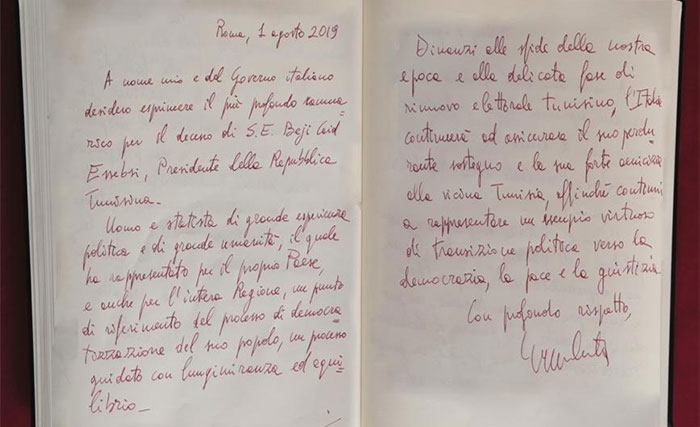 Roma, 1 agosto 2019
A nome mio e del Governo italiano
desidero esprimere il più profondo ramma-
rico per il decesso di S.E. Beji Caid
Essebsi, Presidente della Repubblica
Tunisina.
Uomo e statista di grande esperienza
politica e di grande umanità, il quale
ha rappresentato per il proprio Paese,
e anche per l'intera Regione, un punto
di riferimento del processo di democra-
tizzazione del suo popolo, un processo
guidato con lungimiranza ed equi-
librio_
Dinanzi alle sfide della nostra
epoca e alla delicata fase di
rinnovo elettorale tunisino, l'Italia
continuerà ad assicurare il suo perdu-
rante sostegno e la sua forte amicizia
alla vicina Tunisia, affinché continui
a rappresentare un esempio virtuoso
di transizione politica verso la
democrazia, la pace e la giustizia
Con profondo rispetto,